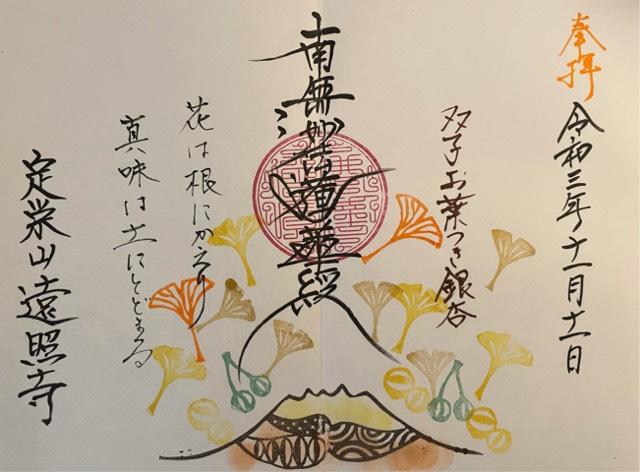 奉拝
令和三年十一月十一日
双子お葉つき銀杏
南無妙法蓮華経
花は根にかえり
真味は土にとどまる
定栄山遠照寺